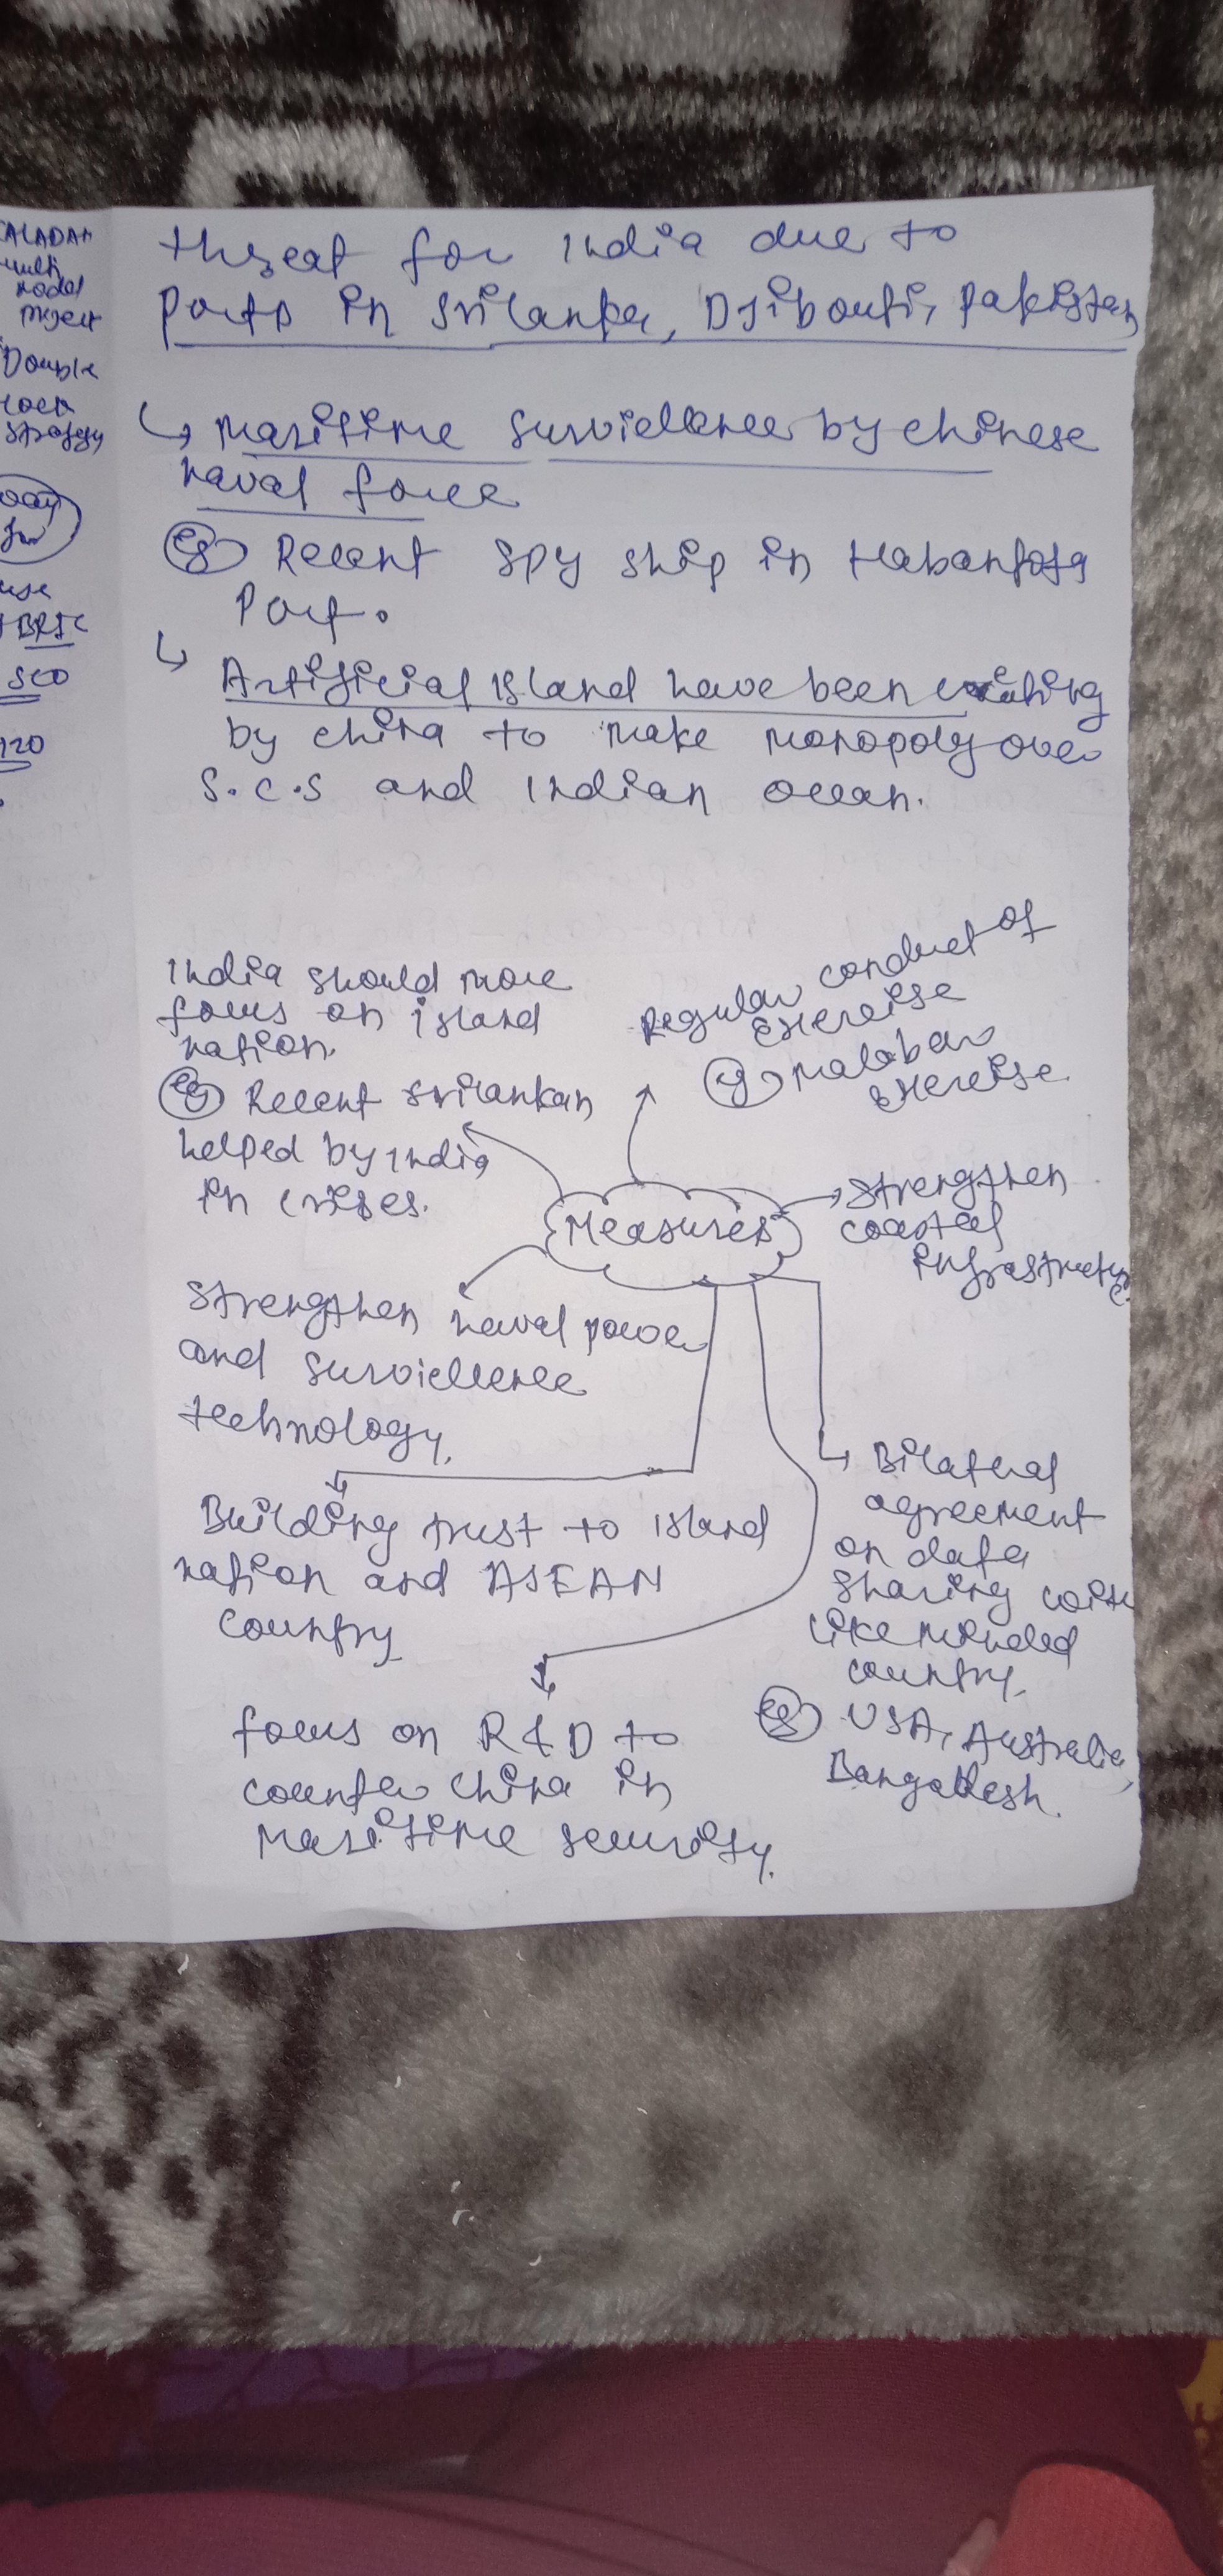 multi
modal
project
Double
strategy
use
SCO
threat for India due to
Ports in Srilanka, Djibouti, Pakistan
↳ Maritime Surviellence by chinese
naval force
eg Recent spy ship in Habantota
Port.
↳ Artificial Island have been creating
by china to make monopoly over
S.C.S and Indian ocean.
India should more
focus on island
nation.
eg Recent Srilankan
helped by India
in crises.
Regular conduct of
Exercise
eg Malabar
exercise
Measures
Strengthen
coastal
infrastructure.
Strengthen naval power
and surviellence
technology.
Building trust to island
nation and ASEAN
country
Bilateral
agreement
on data
sharing with
like minded
country.
eg USA, Australia,
Bangadesh.
focus on R&D to
counter china in
Maritime security.